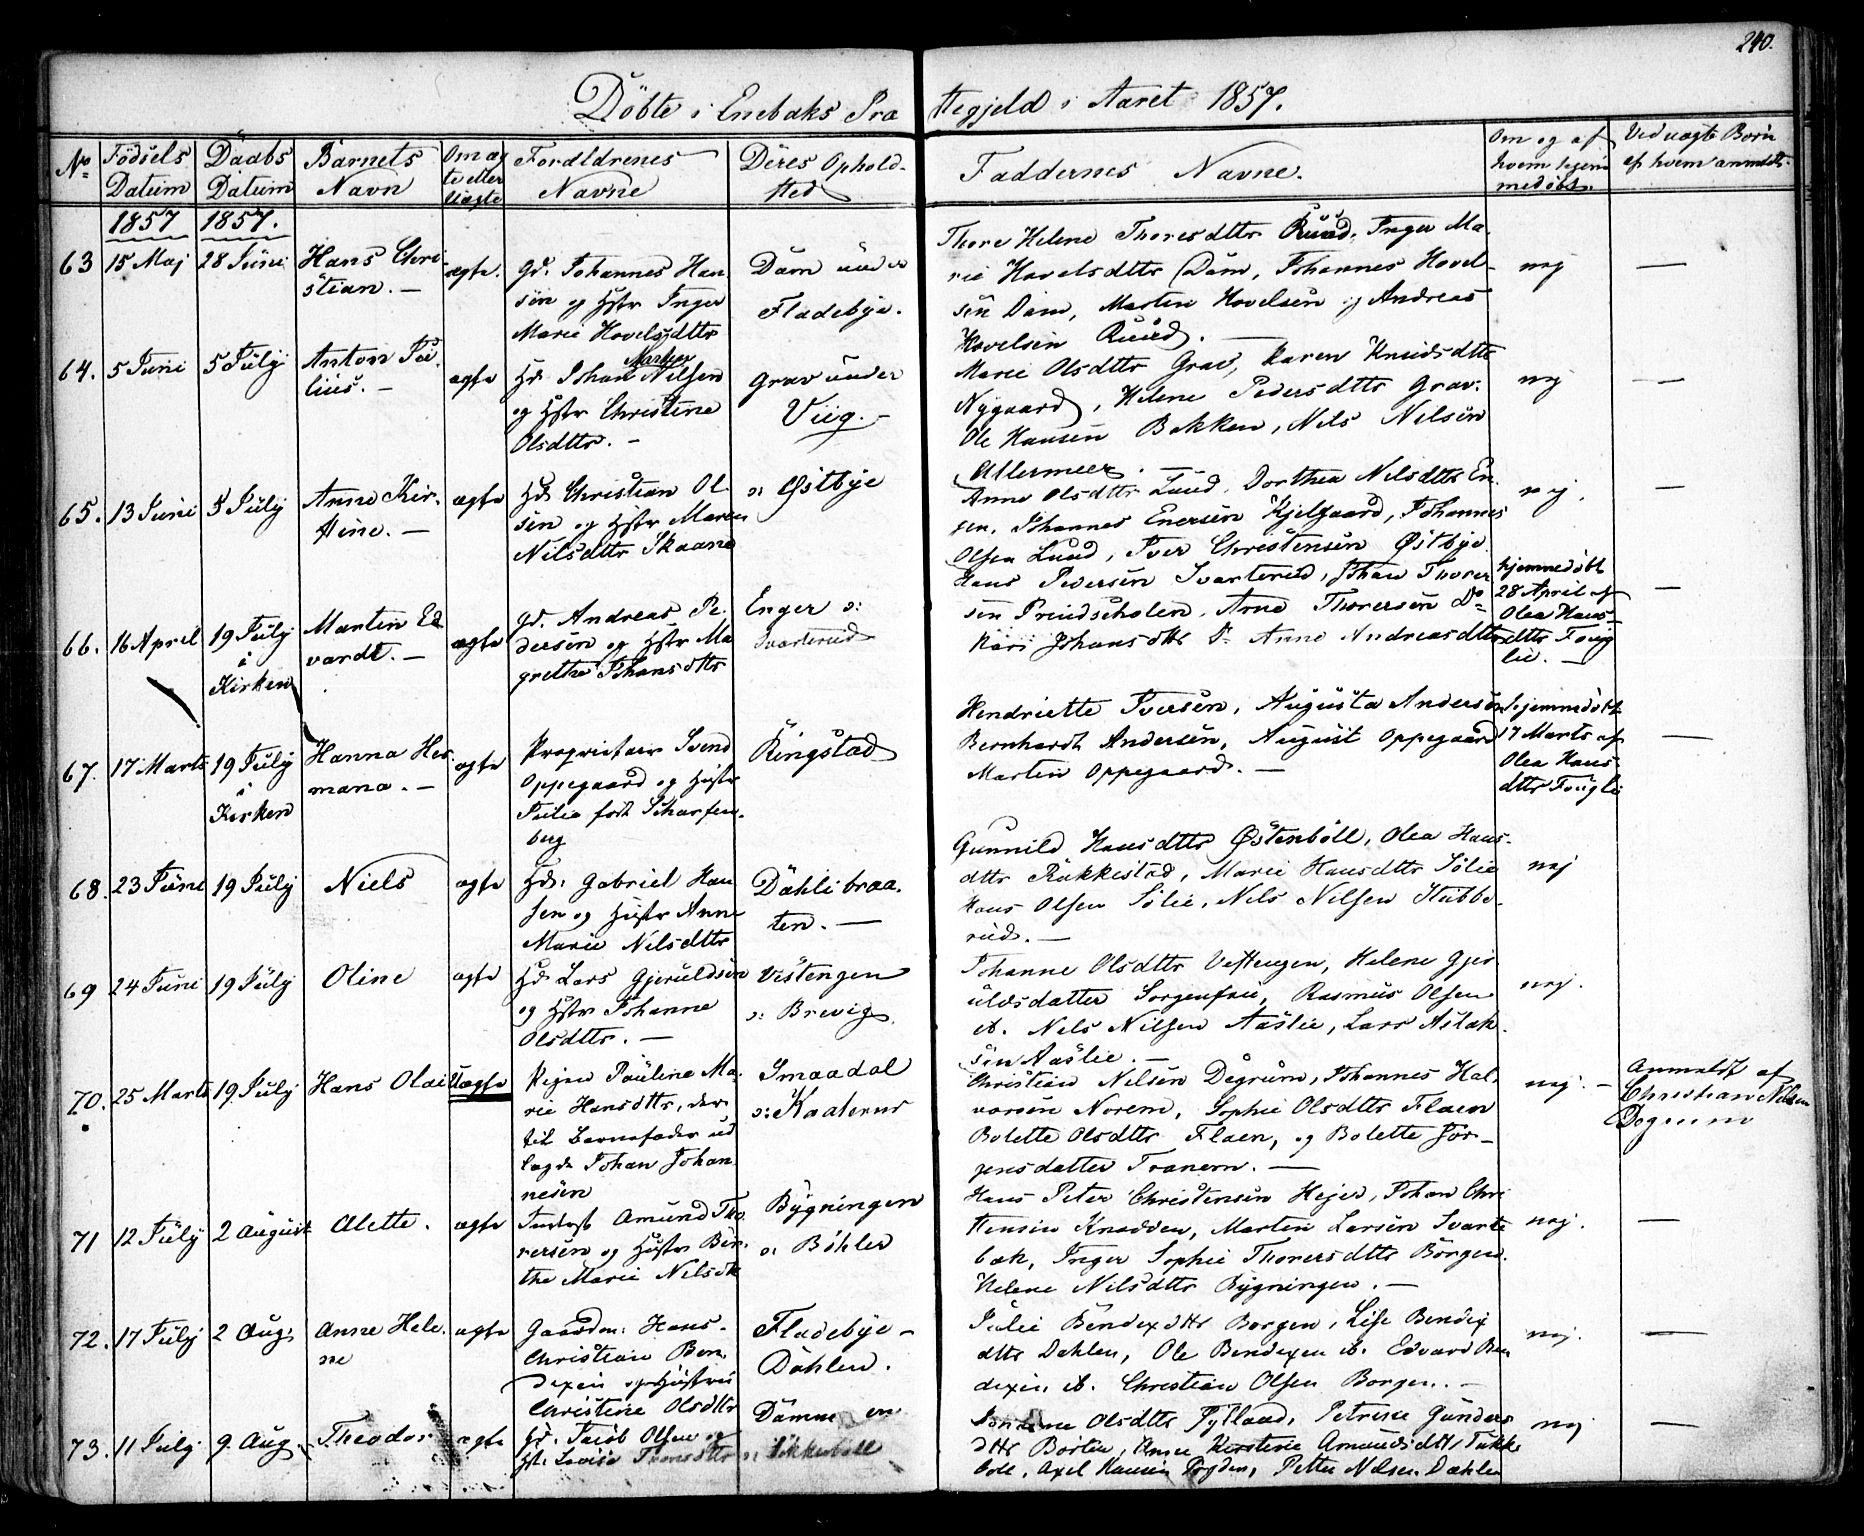 240.
Döbte i Enebaks Præstegjeld i Aaret 1857.
No Födsels Datum | Daabs Datum | Barnets Navn | Om ægte eller Uægte | Foraldrenes Navne | Deres Opholdsted | Faddernes Navne. | Om og af hvem hjemmedöbt. | Ved uægte Börn af hvem anmeldt.
1857 1857.
63 15 Maj 28 Juni Hans Christian. — ægte. Gd. Johannes Hansen og Hstr Inger Marie Hovelsdttr
Dam under Fladebye.
Thore Helene Thoresdttr Ruud, Inger Ma-
rie Hovelsdttr Dam, Johannes Hovel-
sen Dam, Martin Hovelsen og Andreas
Hovelsen Ruud. —
nej —
64. 5 Juni 5 Julj Anton Julius. — ægte Hd. Johan Nilsen Markør og Hstr Christine Olsdttr. —
Grav under Viig. —
Marie Olsdttr Grav, Karen Knudsdttr
Nygaard, Helene Pedersdttr Grav.
Ole Hansen Bakken, Nils Nilsen
Allermeer. —
nej —
65. 13 Juni 5 Julj Anne Kirstine. — ægte Hd. Christian Olsen og Hstr Maren Nilsdttr Skaane
o: Østbye
Anne Olsdttr Lund, Dorthea Nilsdttr En-
gen, Johannes Enersen Kjelgaard, Johannes
Olsen Lund, Iver Christensen Østbye
nej. —
66. 16 April 19 Julj i Kirken Martin Edvardt. — ægte Gd. Andreas Pedersen og Hstr Magrethe Johansdttr
Enger o: Svarterud
Hans Pedersen Svarterud, Johan Thorer
sen Prindseholen, Arne Thorersen Do
Kari Johansdttr Do Anne Andreasdttr
hjemmedöbt 28 April af Olea Hansdttr Fouglie. — —
67. 17 Marts 19 Julj i Kirken Hanna Hermana. — ægte Proprietair Svend Oppegaard og Hustr Julie född Scharfenberg
Ringstad
Hendriette Iversen, Augusta Andersen
Bernhardt Andersen, August Oppegaard
Martin Oppegaard. —
hjemmedöbt 17 Marts af Olea Hansdttr Fouglie —
68. 23 Juni 19 Julj Niels ægte Hd. Gabriel Hansen og Hustr Anne Marie Nilsdttr
Dahlibraaten. —
Gunnild Hansdttr Østenböll, Olea Hans-
dttr Rakkestad, Marie Hansdttr Sölie
Hans Olsen Sölie, Nils Nilsen Stubbe-
rud. —
nej
69 24 Juni 19 Julj Oline ægte Hd. Lars Gjeruldsen og Hstr Johanne Olsdttr. —
Vestengen o: Brevig.
Johanne Olsdttr Vestengen, Helene Gjer
uldsdatter Sorgenfrie, Rasmus Olsen
ib. Nils Nilsen Aaslie, Lars Aslak-
sen Aaslie. —
nej.
70. 25 Marts 19 Julj Hans Olai Uægte Pigen Pauline Marie Hansdttr, der til Barnefader udlagde Johan Johannesen
Smaadal o: Kaaterud
Christian Nilsen Degrum, Johannes Hal-
vorsen Norem, Sophie Olsdttr Flaen
Bolette Olsdttr Flaen, og Bolette Jör-
gensdatter Tranern. —
nej. — Anmeldt af Christian Nilsen Degrum
71 12 Julj 2 August Alette. ægte Inderst Amund Thorersen og Hustr Berthe Marie Nilsdtt
Bygningen o: Böhler
Hans Peter Christensen Hejer, Johan Chri
stensen Knadden, Martin Larsen Svarte
bæk, Inger Sophie Thorersdttr Börgen.
Helene Nilsdttr Bygningen. —
nej. —
72. 17 Julj 2 Aug: Anne Helene ægte Gaardm: Hans Christian Bendixen og Hustru Christine Olsdttr
Fladebye-Dahlen.
Julie Bendexdttr Borgen, Lise Bendix
dttr Dahlen, Ole Bendixen ib. Edvard Ben
dixen ib. Christian Olsen Borgen. —
nej. —
73. 11 Julj 9 Aug. Theodor ægte Gd. Jacob Olsen og Hst. Lovise Thoresdttr
Olsdttr Jylland, Petrine Gunders
dttr Börten, Anne Kirstine Amundsdttr
Axel Hansen Petter Nilsen Dæhlen
nej —